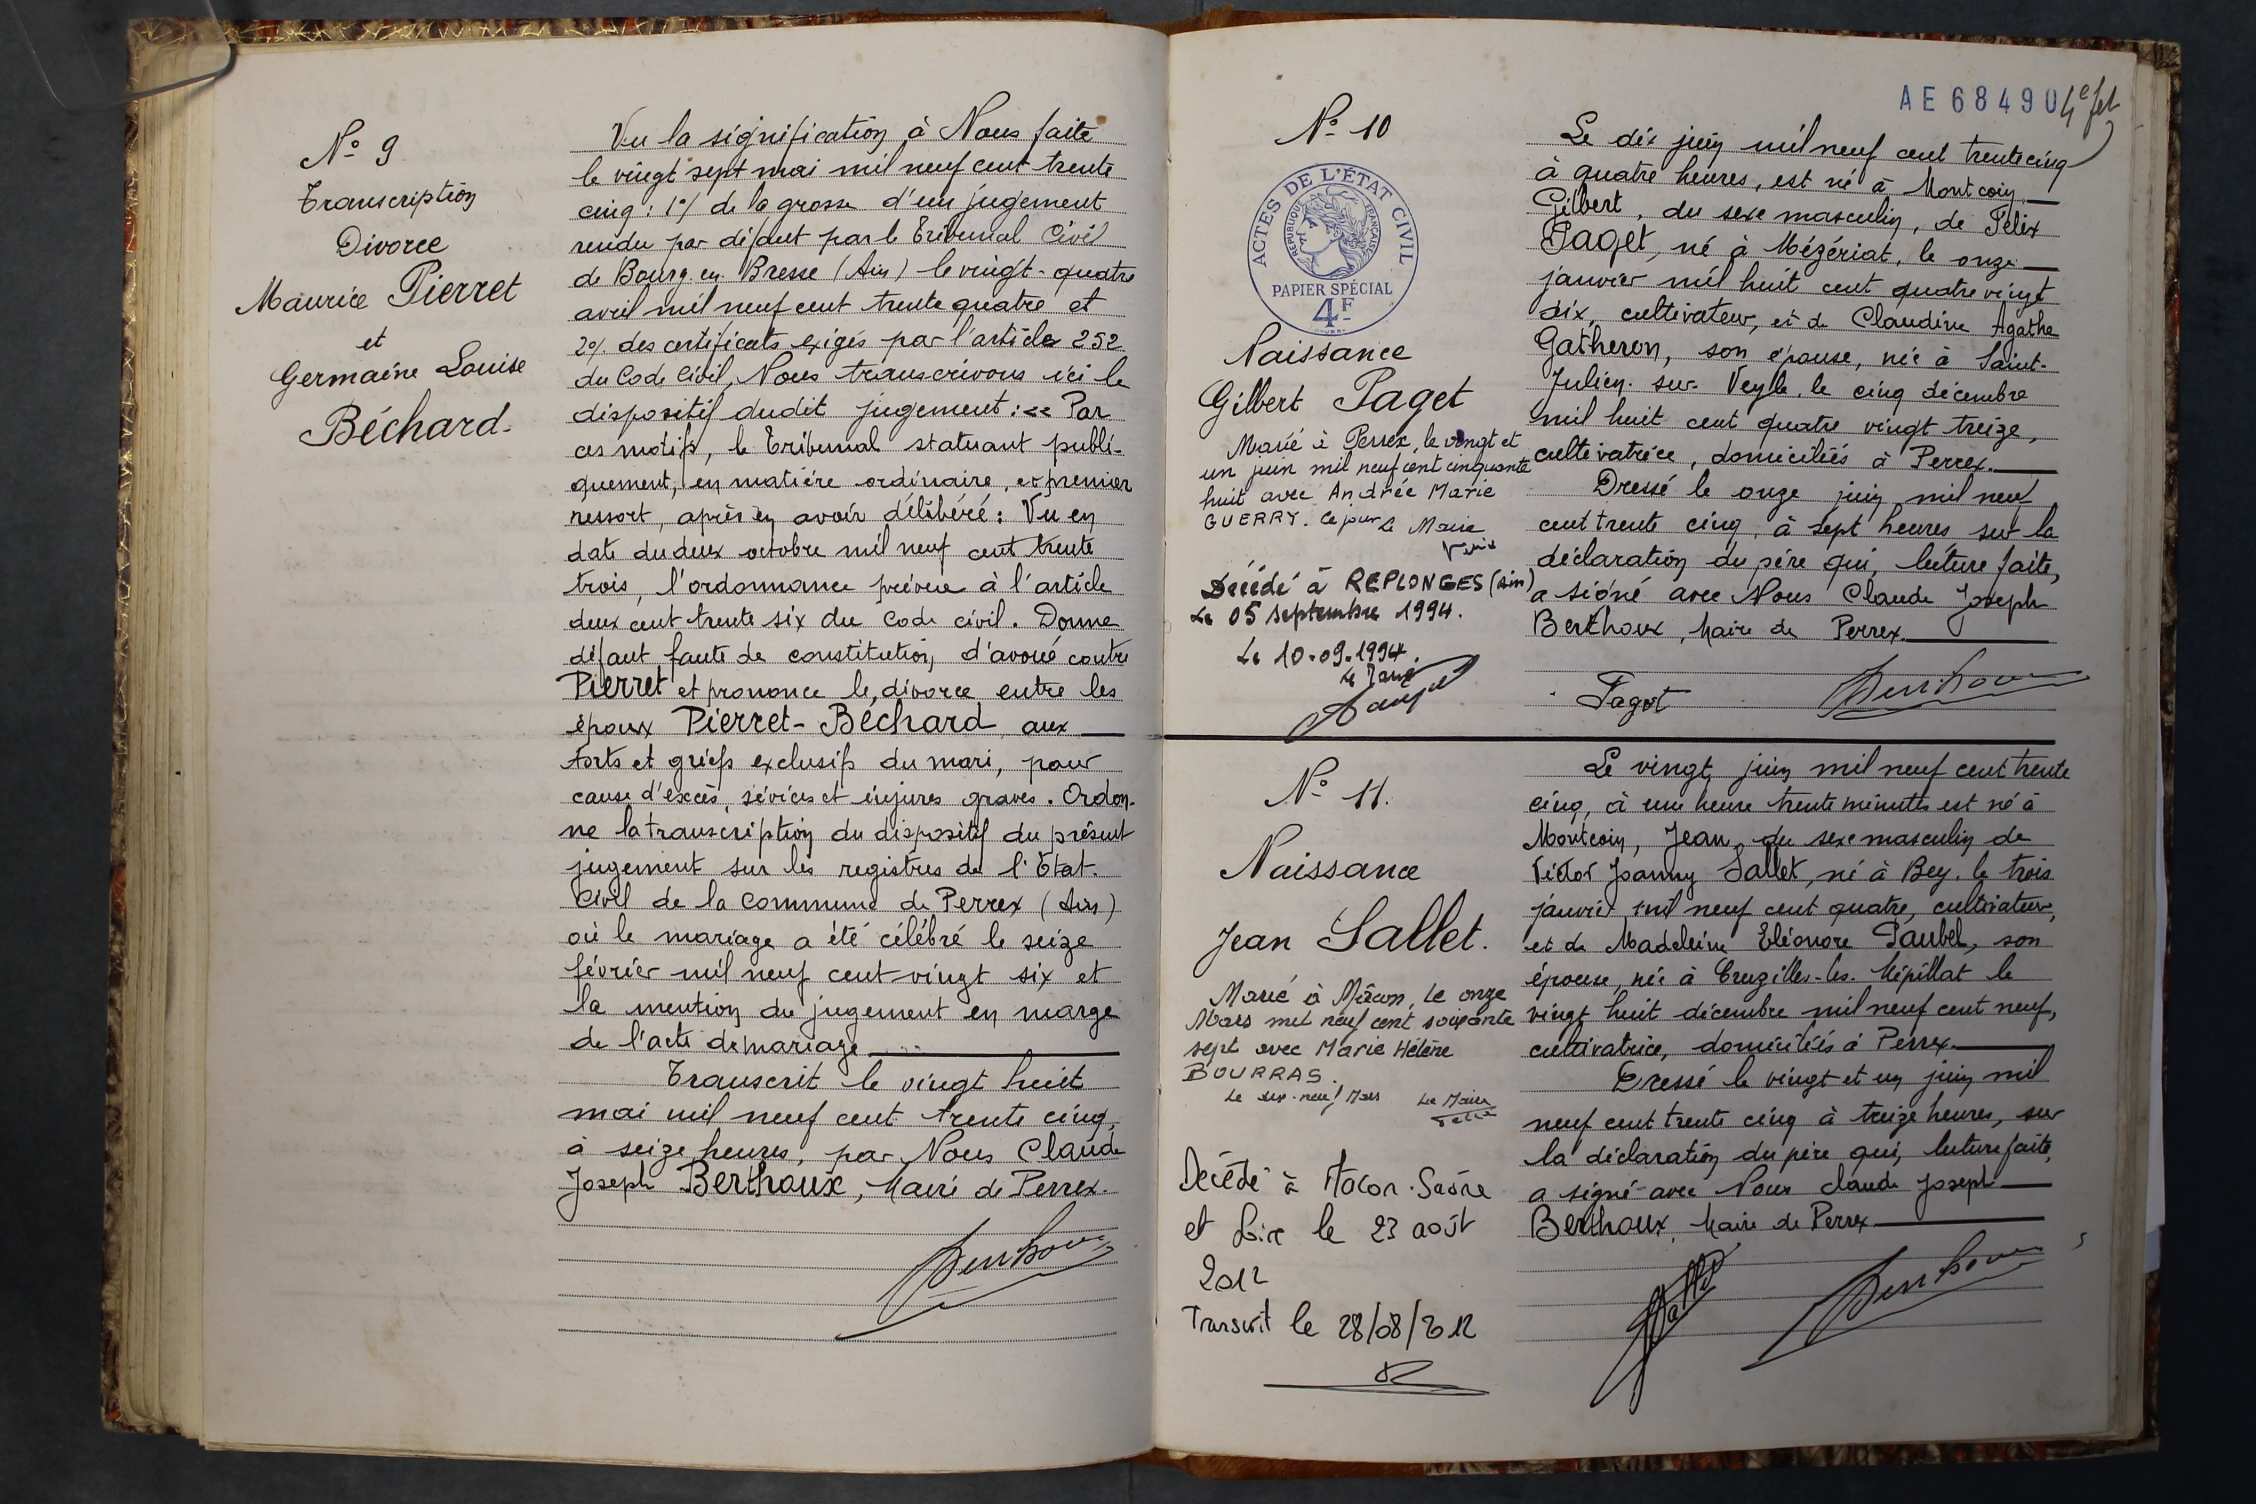 N° 9
Transcription
Divorce
Maurice Pierret
et
Germaine Louise
Béchard.
Vu la signification à Nous faite
le vingt sept mai mil neuf cent trente
cinq : 1°/ de la grosse d'un jugement
rendu par défaut par le Tribunal Civil
de Bourg en Bresse (Ain) le vingt-quatre
avril mil neuf cent trente quatre et
2°/. des certificats exigés par l'article 252
du Code Civil, Nous transcrivons ici le
dispositif dudit jugement : << Par
ces motifs, le Tribunal statuant publi-
quement, en matière ordinaire, et premier
ressort, après en avoir délibéré : Vu en
date du deux octobre mil neuf cent trente
trois, l'ordonnance prévue à l'article
deux cent trente six du Code civil. Donne
défaut faute de constitution d'avoué contre
Pierret et prononce le divorce entre les
époux Pierret-Béchard aux
torts et griefs exclusifs du mari, pour
cause d'excès, sévices et injures graves. Ordon-
ne la transcription du dispositif du présent
jugement sur les registres de l'État-
Civil de la commune de Perrex (Ain)
où le mariage a été célébré le seize
février mil neuf cent vingt six et
la mention du jugement en marge
de l'acte de mariage
Transcrit le vingt huit
mai mil neuf cent trente cinq,
à seize heures, par Nous Claude
Joseph Berthoux, Maire de Perrex.
Berthoux
AE 68490 4e fet
N° 10
ACTES DE L'ÉTAT CIVIL
RÉPUBLIQUE FRANÇAISE
PAPIER SPÉCIAL
4F
Naissance
Gilbert Paget
Marié à Perrex, le vingt et
un juin mil neuf cent cinquante
huit avec Andrée Marie
GUERRY. Ce jour Le Maire
Décédé à REPLONGES (Ain)
Le 05 septembre 1994.
Le 10.09.1994.
Le Maire
Le dix juin mil neuf cent trente cinq
à quatre heures, est né à Montcoin
Gilbert, du sexe masculin, de Félix
Paget, né à Mézériat, le onze
janvier mil huit cent quatre vingt
dix, cultivateur, et de Claudine Agathe
Gatheron, son épouse, née à Saint-
Julien-sur-Veyle, le cinq décembre
mil huit cent quatre vingt treize,
cultivatrice, domiciliés à Perrex.
Dressé le onze juin mil neuf
cent trente cinq, à sept heures sur la
déclaration du père qui, lecture faite,
a signé avec Nous Claude Joseph
Berthoux, Maire de Perrex.
Paget
Berthoux
N° 11.
Naissance
Jean Sallet.
Marié à Mâcon, le onze
Mars mil neuf cent soixante
sept avec Marie Hélène
BOURRAS.
Le dix-neuf Mars Le Maire
Décédé à Macon-Saône
et Loire le 23 août
2012
Transcrit le 28/08/2012
Le vingt juin mil neuf cent trente
cinq, à une heure trente minutes est né à
Montcoin, Jean, du sexe masculin de
Victor Joanny Sallet, né à Bey, le trois
janvier mil neuf cent quatre, cultivateur,
et de Madeleine Eléonore Paubel, son
épouse, née à Cruzilles-les-Mépillat le
vingt huit décembre mil neuf cent neuf,
cultivatrice, domiciliés à Perrex.
Dressé le vingt et un juin mil
neuf cent trente cinq à treize heures, sur
la déclaration du père qui, lecture faite,
a signé avec Nous Claude Joseph
Berthoux, Maire de Perrex
Sallet
Berthoux